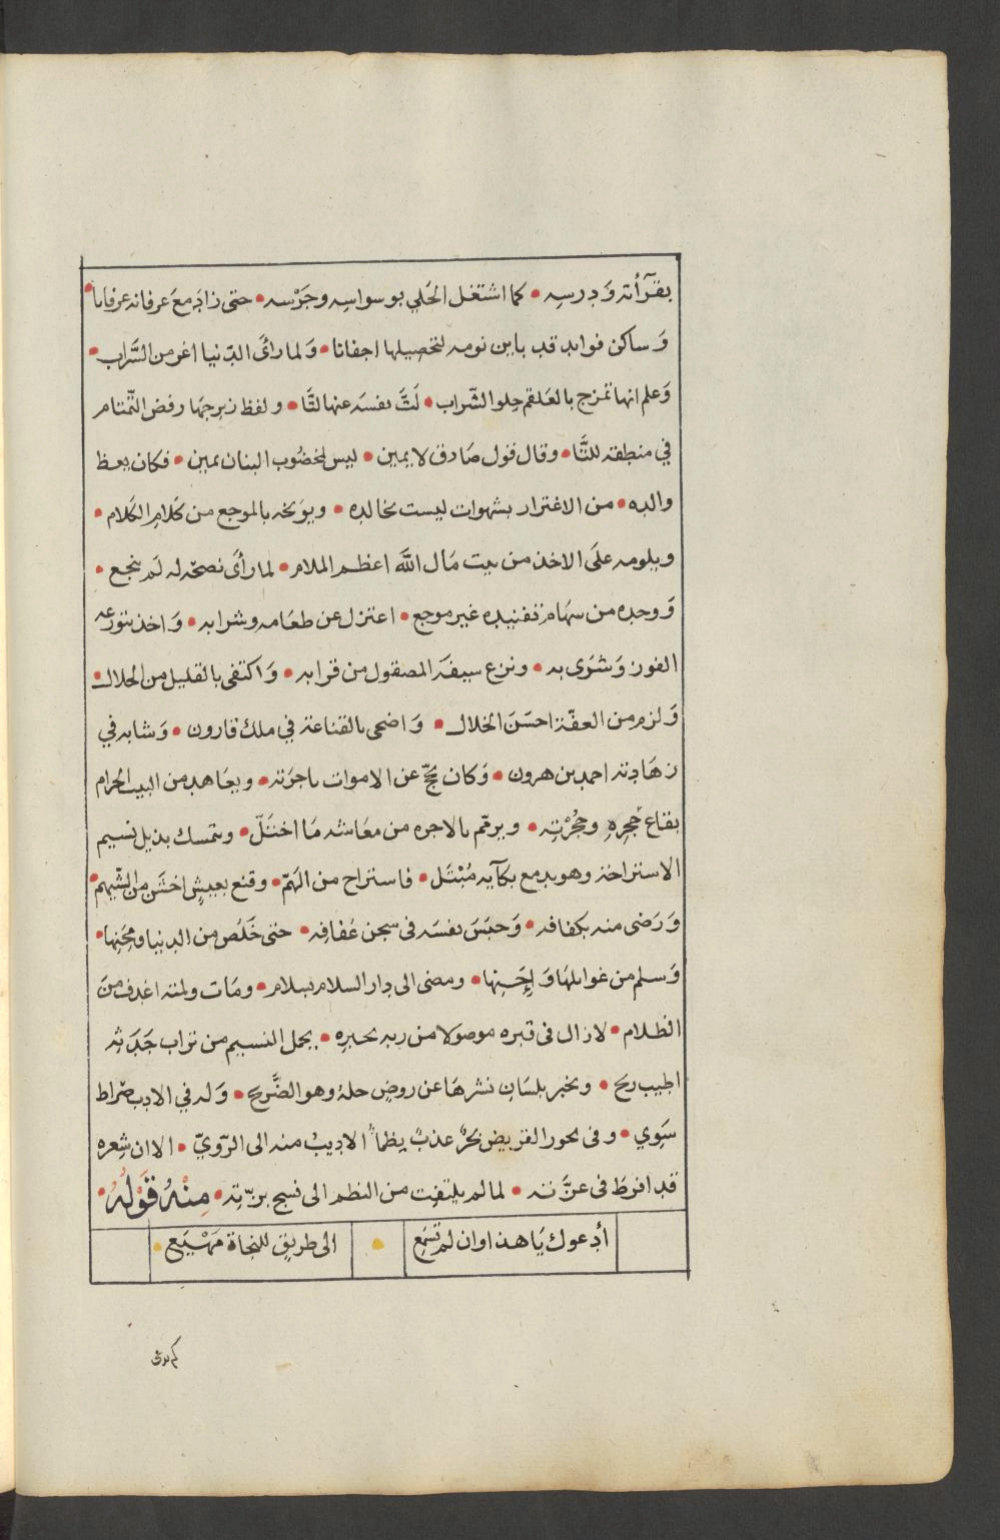 بقرآءته وَدرسِه • كما اشتغل الحَلي بوسواسِه وجَرْسه • حتى زادِ معَ عرفانه عرفانا •
وَساكن فوايد قد باين نومه لتحصيلها اجفانا • وَلما رائَ الدّنيا اغر من السَّراب •
وَعلم انها تمزج بالعَلقم حِلو الشّراب • لَتَّ نفسَه عنها لتَّا • ولفظ زبرجهَا رفض التّمتام
في منطِقه للتَّا • وقال قول صَادق لا يمين • ليس لمخضُوب البنان يمين • فكان يعظ
والده • من الاغترار بشهوات ليست بخالده • ويوَبخه بالموجع من كَلامِ الكَلام •
ويلومه علَى الاخذ من بيت مَال اللَّه اعظم الملام • لما رأى نصحَه له لَم ينجع •
وَوجده من سهَام تفنيده غير موجع • اعتزل عن طعَامه وشرابه • وَاخذ بتورعه
الفوز وَشرَى به • ونزع سيفَه المصقول من قرابه • وَاكتفى بالقليل من الحلال •
وَلزم من العفّة احسَنَ الخلال • وَاضحى بالقناعة في ملك قارون • وَشابه في
زهَادته احمد بن هرون • وَكان يحجّ عن الاموات باجرَته • ويعَاهد من البيت الحرام
بقاع حَجرِهِ وحُجْرَتِه • ويرمّم بالاجره من معَاشه مَا اختَلّ • ويتمسك بذيل نسيم
الاستراحَة وهو بدمع بكآيه مُبْتَل • فاستراح من الهَمّ • وقنع بعيشٍ اخشَن من الشّيهم •
وَرَضى منه بكفافه • وَحبَسَ نفسَه فى سجن عَفافِه • حتى خَلُص من الدنيا ومِحَنِها •
وَسلم من غوايلهَا وَإِحَنِها • ومضى الى دار السلام بسلام • ومَات ولمته اغدف منَ
الظلام • لازال فى قبره موصولا من ربه بخيرِه • يحمل النسيم من تراب جَدَثِه
اطيب ريح • ويخبر بلسَانِ نشرهَا عن روضٍ حلهُ وهو الضَّريح • وَله في الادب صَراط
سَوِي • وفى بحور القريض بَحْرٌ عذبٌ يظمأُ الاديبُ منه الى الرَّويّ • الا ان شِعره
قد افرطَ فى عزَّته • لما لم يلتفِت من النظم الى نسج برِّته • مِنْهُ قَوْلُهُ •
أدعوك يَا هذا وان لم تَسْمَعِ • الى طريقٍ للنجاة مَهْيَعِ •